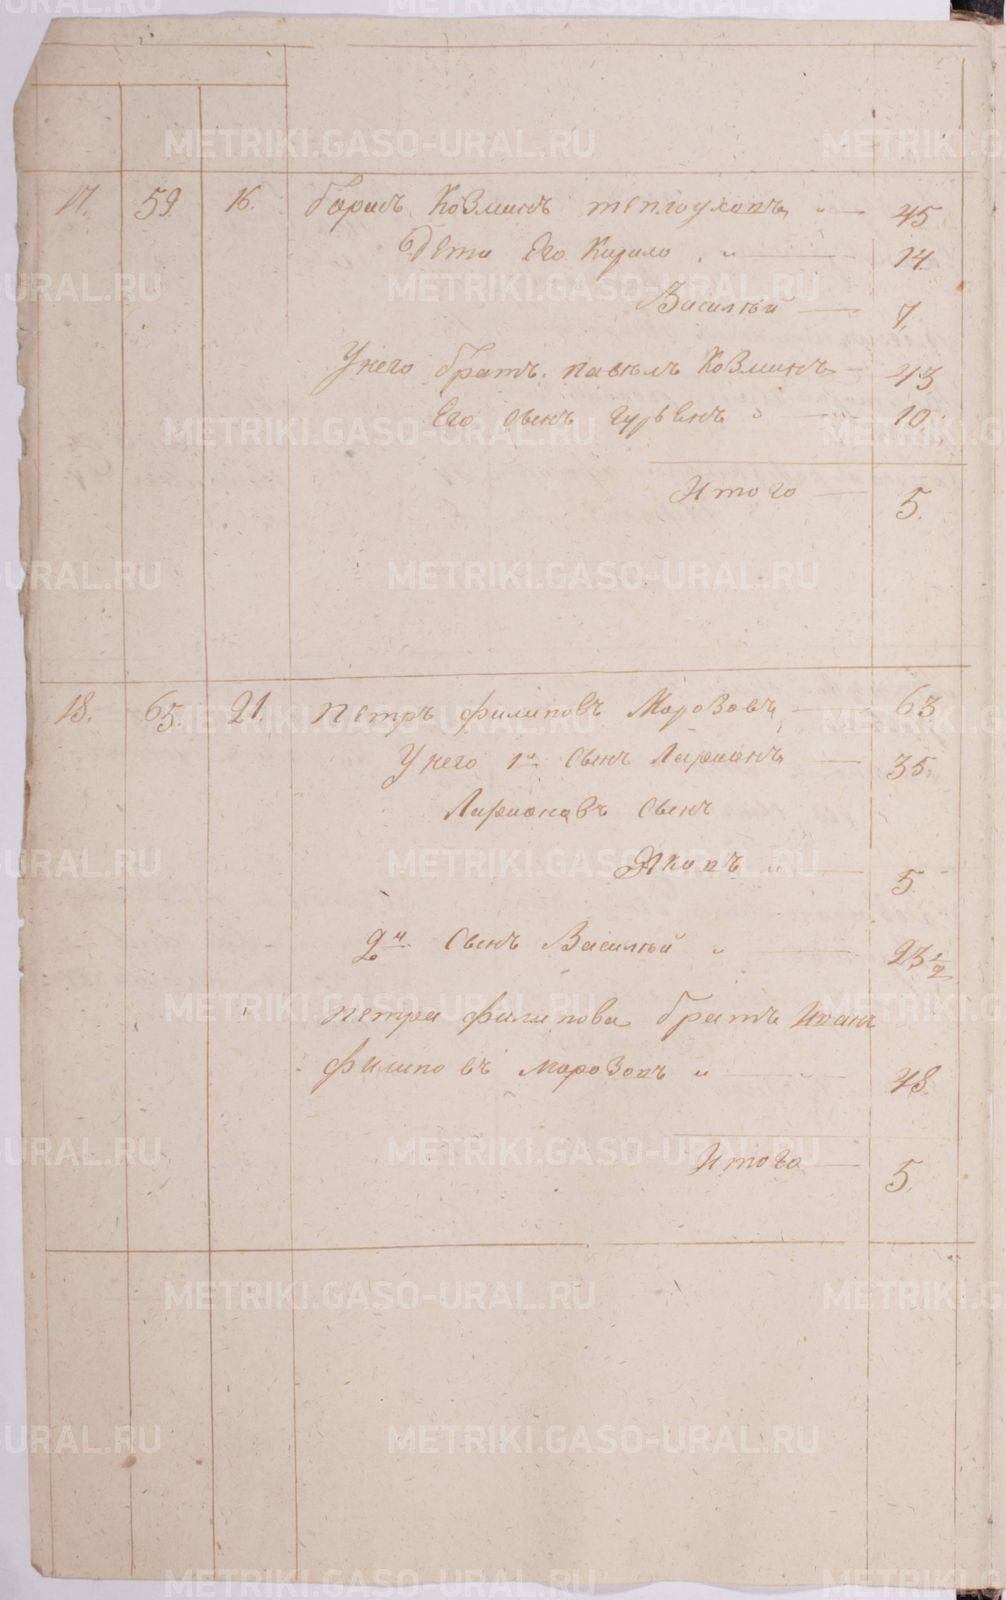 17. 59. 16. Борисъ Козминъ теплоуховъ 45
Дети Его Кирило 14.
Василѣй 7.
У него братъ павелъ Козминъ 43
Его сынъ гурьенъ 10.
Итого 5.
18. 65. 21. петръ филиповъ Морозовъ 63
У него 1й сынъ Ларионъ 35.
Ларионовъ сынъ
Яковъ 5.
2й сынъ Василѣй 23 1/2
петра филипова братъ Иванъ
филиповъ морозовъ 48.
Итого 5.
METRIKI.GASO-URAL.RU